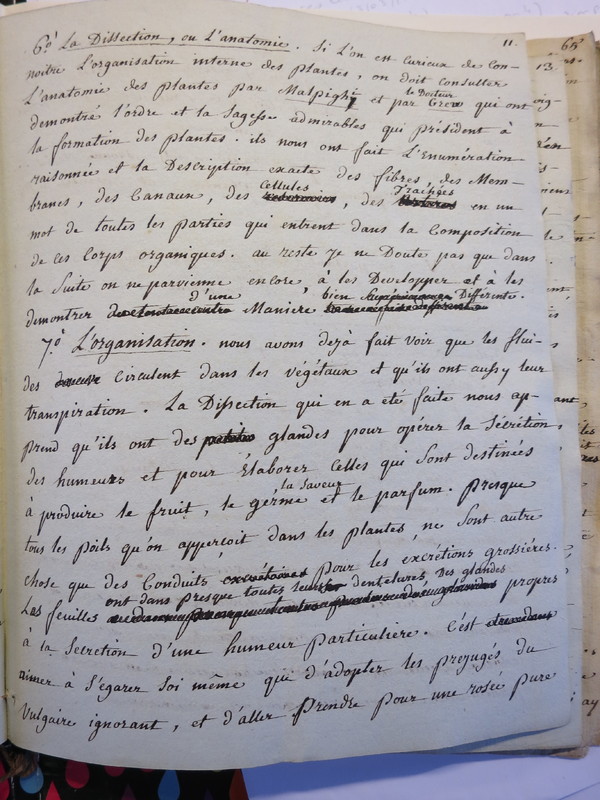 11.
6.º La Dissection, ou L'anatomie. Si L'on en curieux de Con-
noitre L'organisation interne des plantes, on doit consulter
L'anatomie des plantes par Malpighi et par le Docteur Grew qui ont
demontré l'ordre et la Sagesse admirables qui président à
la formation des plantes. ils nous ont fait L'Enumération
raisonnée et la Description exacte des fibres, des Mem-
branes, des Canaux, des Cellules, des Trachées en un
mot de toutes les parties qui entrent dans la Composition
de ces Corps organiques. au reste je ne Doute pas que dans
la Suite on ne parvienne encore à les Developper et à les
demontrer d'une Maniere bien Différente.
7.º L'organisation. nous avons dejà fait voir que les flui-
des Circulent dans les végétaux et qu'ils ont aussy leur
transpiration. La Dissection qui en a été faite nous ap-
prend qu'ils ont des glandes pour opérer la Sécrétion
des humeurs et pour Élaborer Celles qui Sont destinées
à produire le fruit, le germe la Saveur et le parfum. Presque
tous les poils qu'on apperçoit dans les plantes, ne Sont autre
chose que des Conduits pour les excrétions grossiéres.
Les feuilles ont dans presque toutes leurs dentelures, Des glandes propres
à la Secretion d'une humeur particuliere. C'est
aimer à S'égarer Soi même que d'adopter les prejugés du
Vulgaire ignorant, et d'aller Prendre pour une rosée pure
65
13.